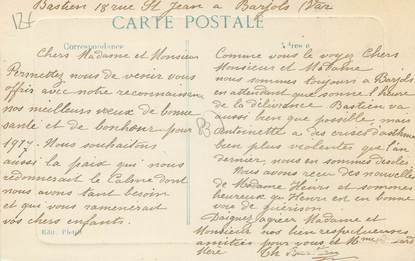 Bastien 18 rue St Jean a Barjols Var
CARTE POSTALE
Correspondance
Chers Madame et Monsieur
Permettez nous de venir vous
offrir avec notre reconnaissance
nos meilleurs voeux de bonne
santé et de bonheur pour
1917. Nous souhaitons
aussi la paix qui nous
redonnerait le Calme dont
nous avons tant besoin
et qui vous ramenerait
vos chers enfants.
Adresse
Comme vous le voyez Chers
Monsieur et Madame
nous sommes toujours a Barjols
en attendant que sonne l'heure
de la délivrance. Bastien va
aussi bien que possible, mais
Antoinette a des crises d'asthme
bien plus violentes que l'an
dernier, nous en sommes désolés
Nous avons reçu des nouvelles
de Madame Henrs et sommes
heureux qu'Henri est en bonne
voie de guérison.
Daignez agréer Madame et
Monsieur nos bien respectueuses
amitiés pour vous et Mme
Th Bastien